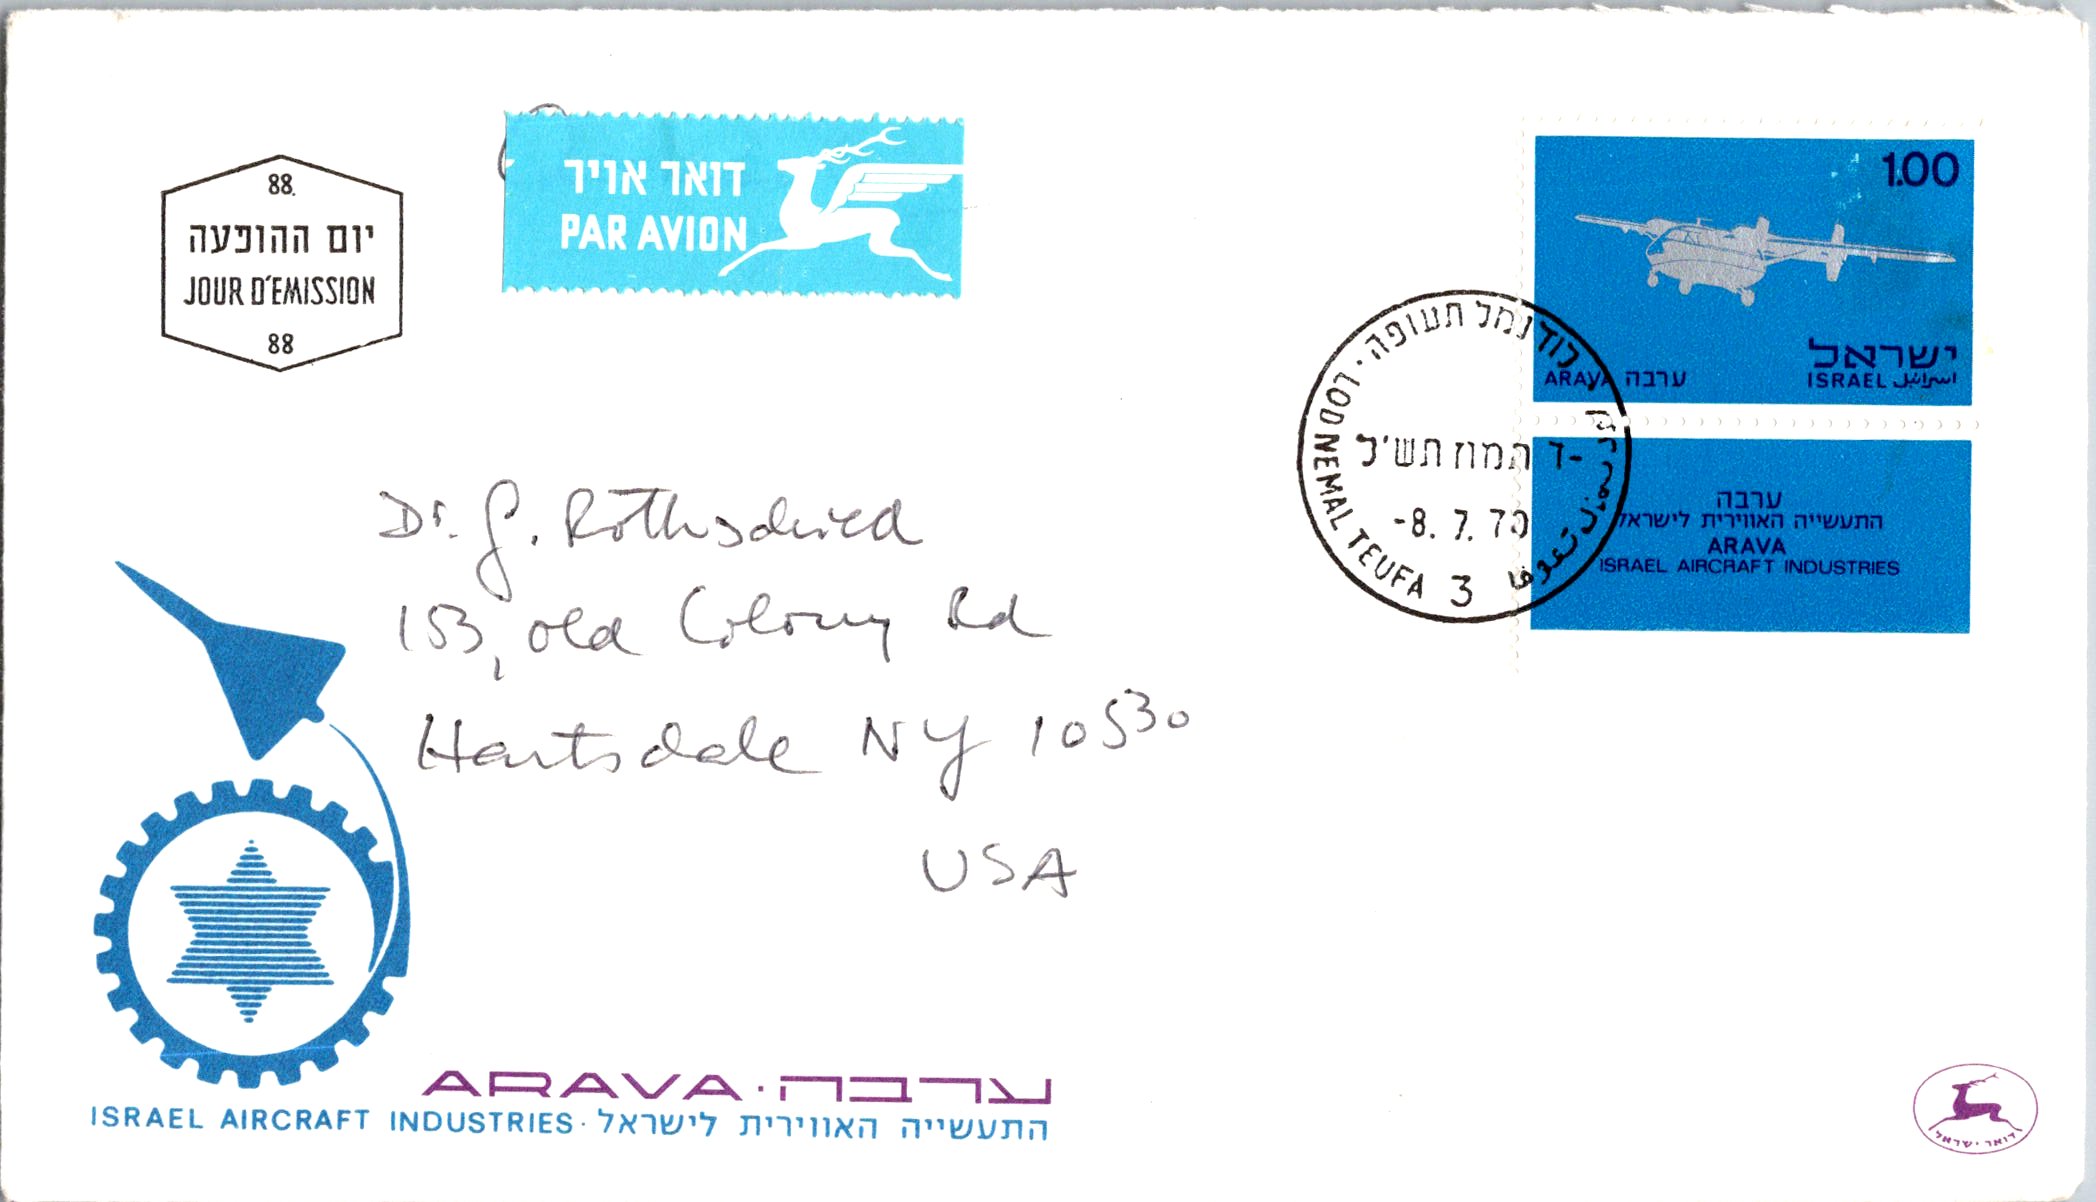 88.
יום ההופעה
JOUR D'EMISSION
88
דואר אויר
PAR AVION
1.00
ישראל
ISRAEL اسرائيل
ARAVA ערבה
לוד נמל תעופה · LOD NEMAL TEUFA 3
ד- תמוז תש"ל
-8. 7. 70
ערבה
התעשייה האווירית לישראל
ARAVA
ISRAEL AIRCRAFT INDUSTRIES
Dr. G. Rothschied
153, old Colony Rd
Hartsdale NY 10530
USA
ARAVA · ערבה
ISRAEL AIRCRAFT INDUSTRIES · התעשייה האווירית לישראל
דואר · ישראל